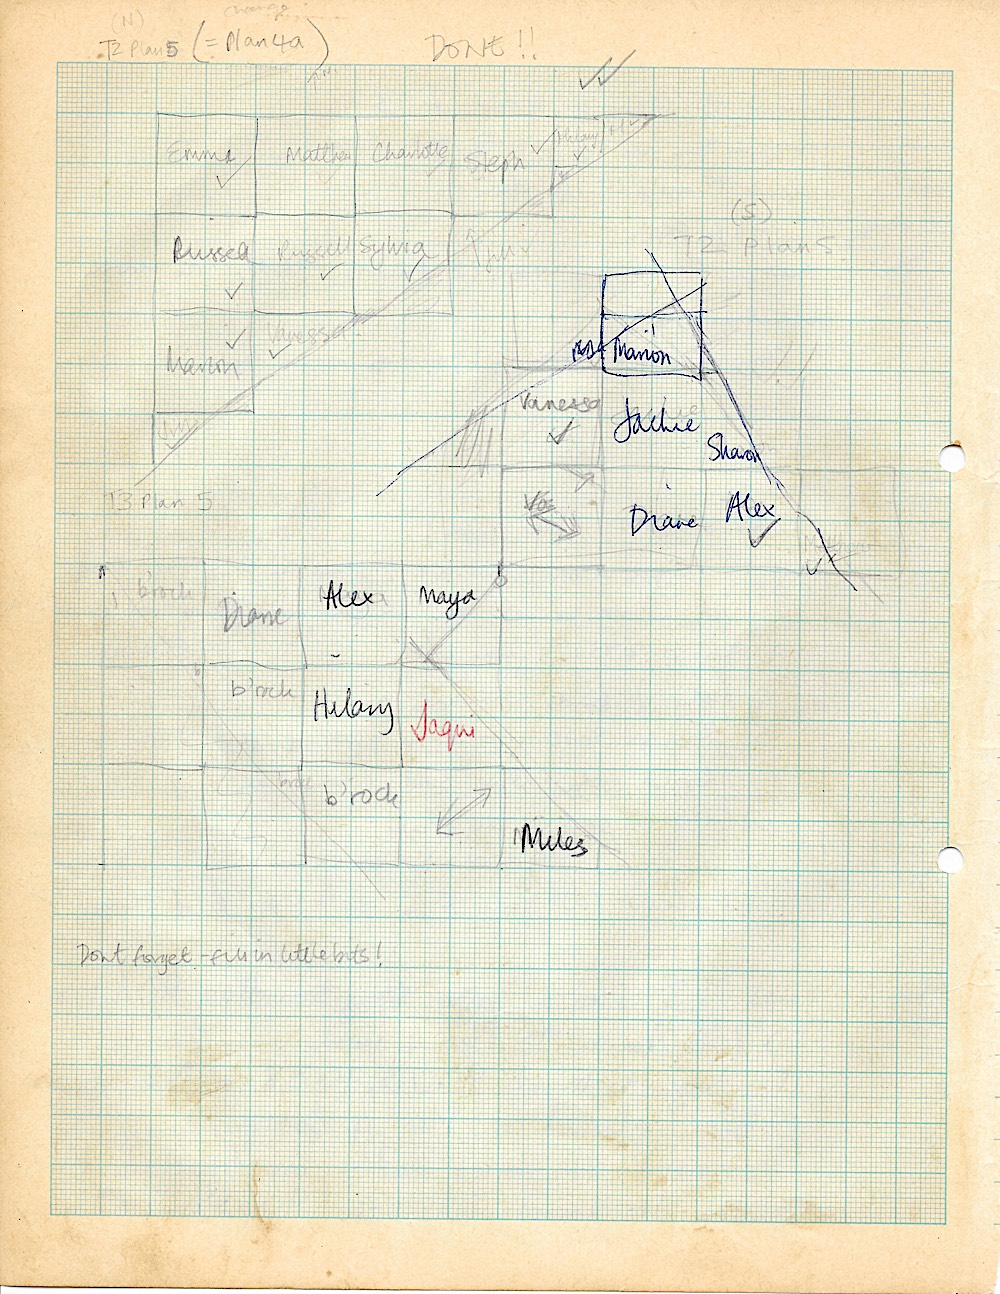 (N)
change
T2 Plan 5 (= Plan 4a)
DONE!!
Emma Matthew Charlotte Steph Hilary
Russell Russell Sylvia
(S)
T2 Plan 5
Marion Vanessa
Marion
Vanessa Jackie
Sharon
T3 Plan 5
Va Diane Alex
b'rock Diane Alex Maya
b'rock Hilary Jaqui
b'rock
Miles
Dont forget - fill in little bits!